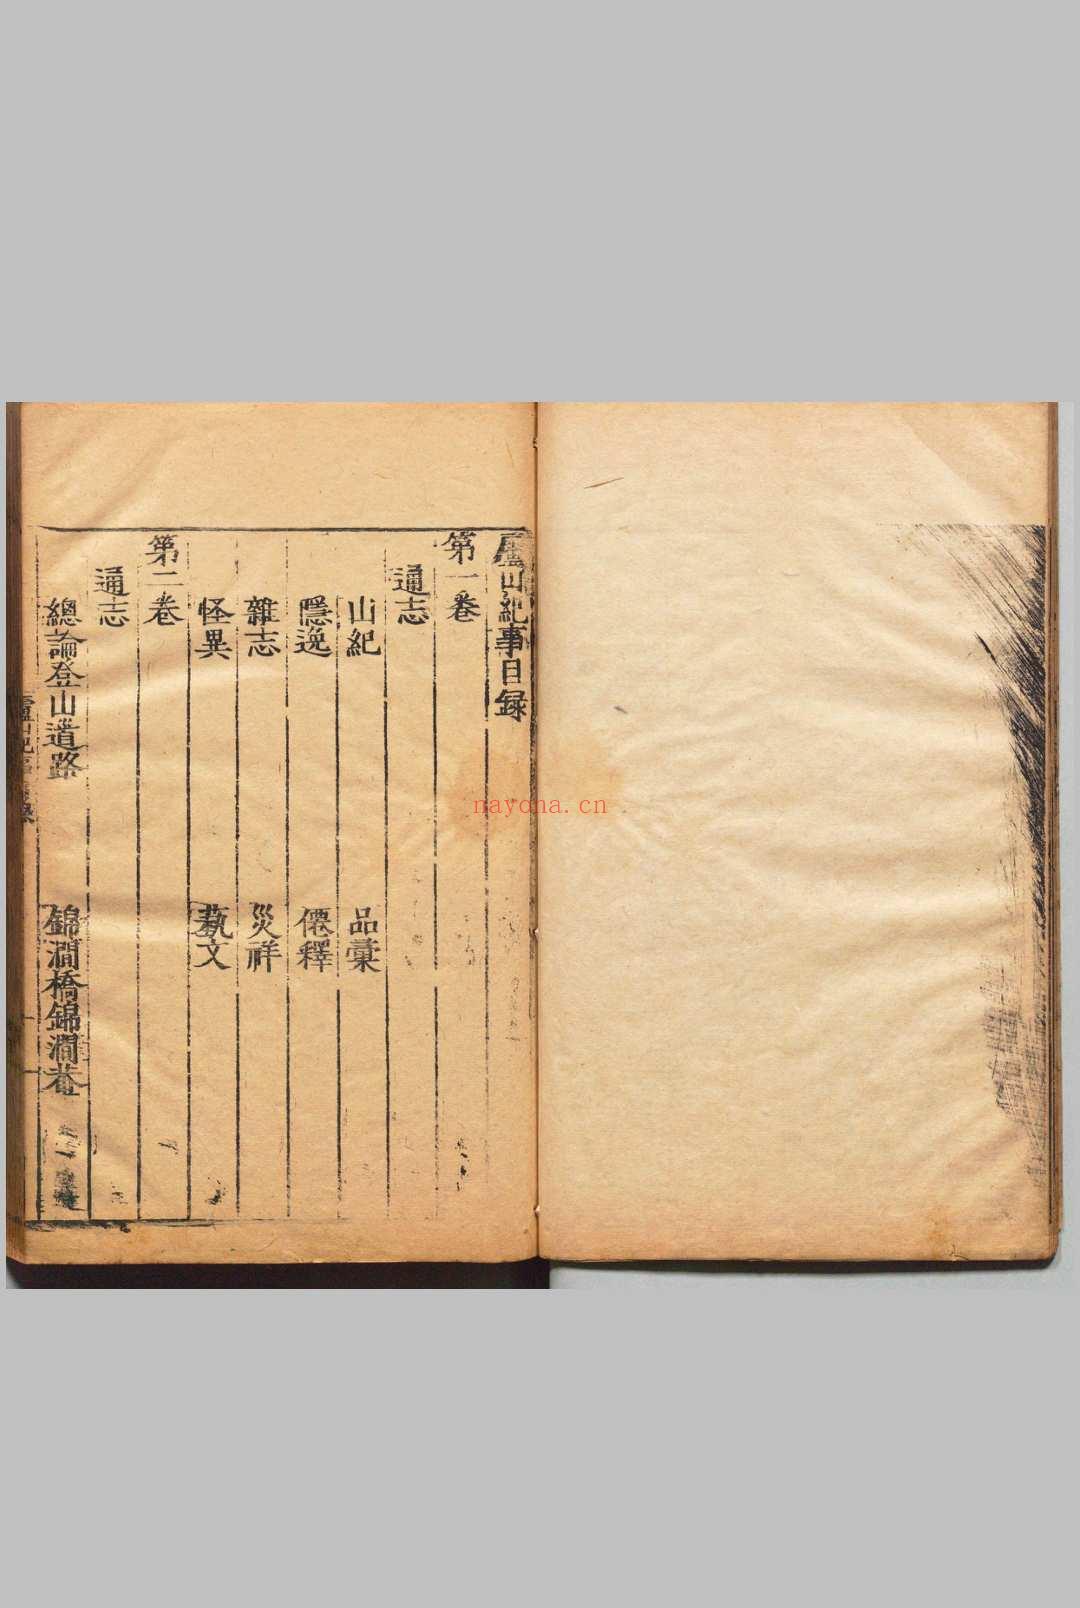 廬山紀事目録
第一卷
通志
山紀 品彙
隱逸 僊釋
雜志 災祥
怪異 藝文
第二卷
通志
總論登山道路 錦澗橋錦澗菴
廬山紀事
nayona.cn